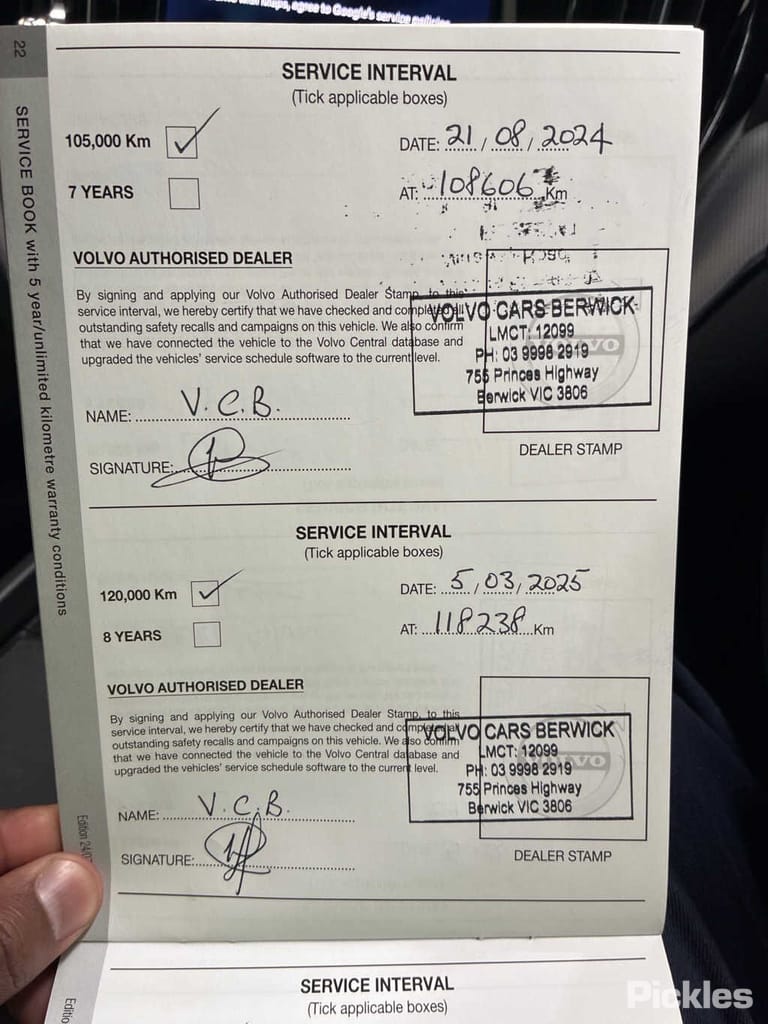 Maps, agree to Google's service policies
22
SERVICE BOOK with 5 year/unlimited kilometre warranty conditions
SERVICE INTERVAL
(Tick applicable boxes)
105,000 Km
DATE: 21/08/2024
7 YEARS
AT: 108606 Km
VOLVO AUTHORISED DEALER
By signing and applying our Volvo Authorised Dealer Stamp, to this
service interval, we hereby certify that we have checked and completed all
outstanding safety recalls and campaigns on this vehicle. We also confirm
that we have connected the vehicle to the Volvo Central database and
upgraded the vehicles' service schedule software to the current level.
VOLVO CARS BERWICK
LMCT: 12099
PH: 03 9998 2919
755 Princes Highway
Berwick VIC 3806
VOLVO
NAME: V.C.B.
SIGNATURE:
DEALER STAMP
SERVICE INTERVAL
(Tick applicable boxes)
120,000 Km
DATE: 5/03/2025
8 YEARS
AT: 118238 Km
VOLVO AUTHORISED DEALER
By signing and applying our Volvo Authorised Dealer Stamp, to this
service interval, we hereby certify that we have checked and completed all
outstanding safety recalls and campaigns on this vehicle. We also confirm
that we have connected the vehicle to the Volvo Central database and
upgraded the vehicles' service schedule software to the current level.
VOLVO CARS BERWICK
LMCT: 12099
PH: 03 9998 2919
755 Princes Highway
Berwick VIC 3806
VOLVO
NAME: V.C.B.
SIGNATURE:
DEALER STAMP
Edition
SERVICE INTERVAL
(Tick applicable boxes)
Pickles